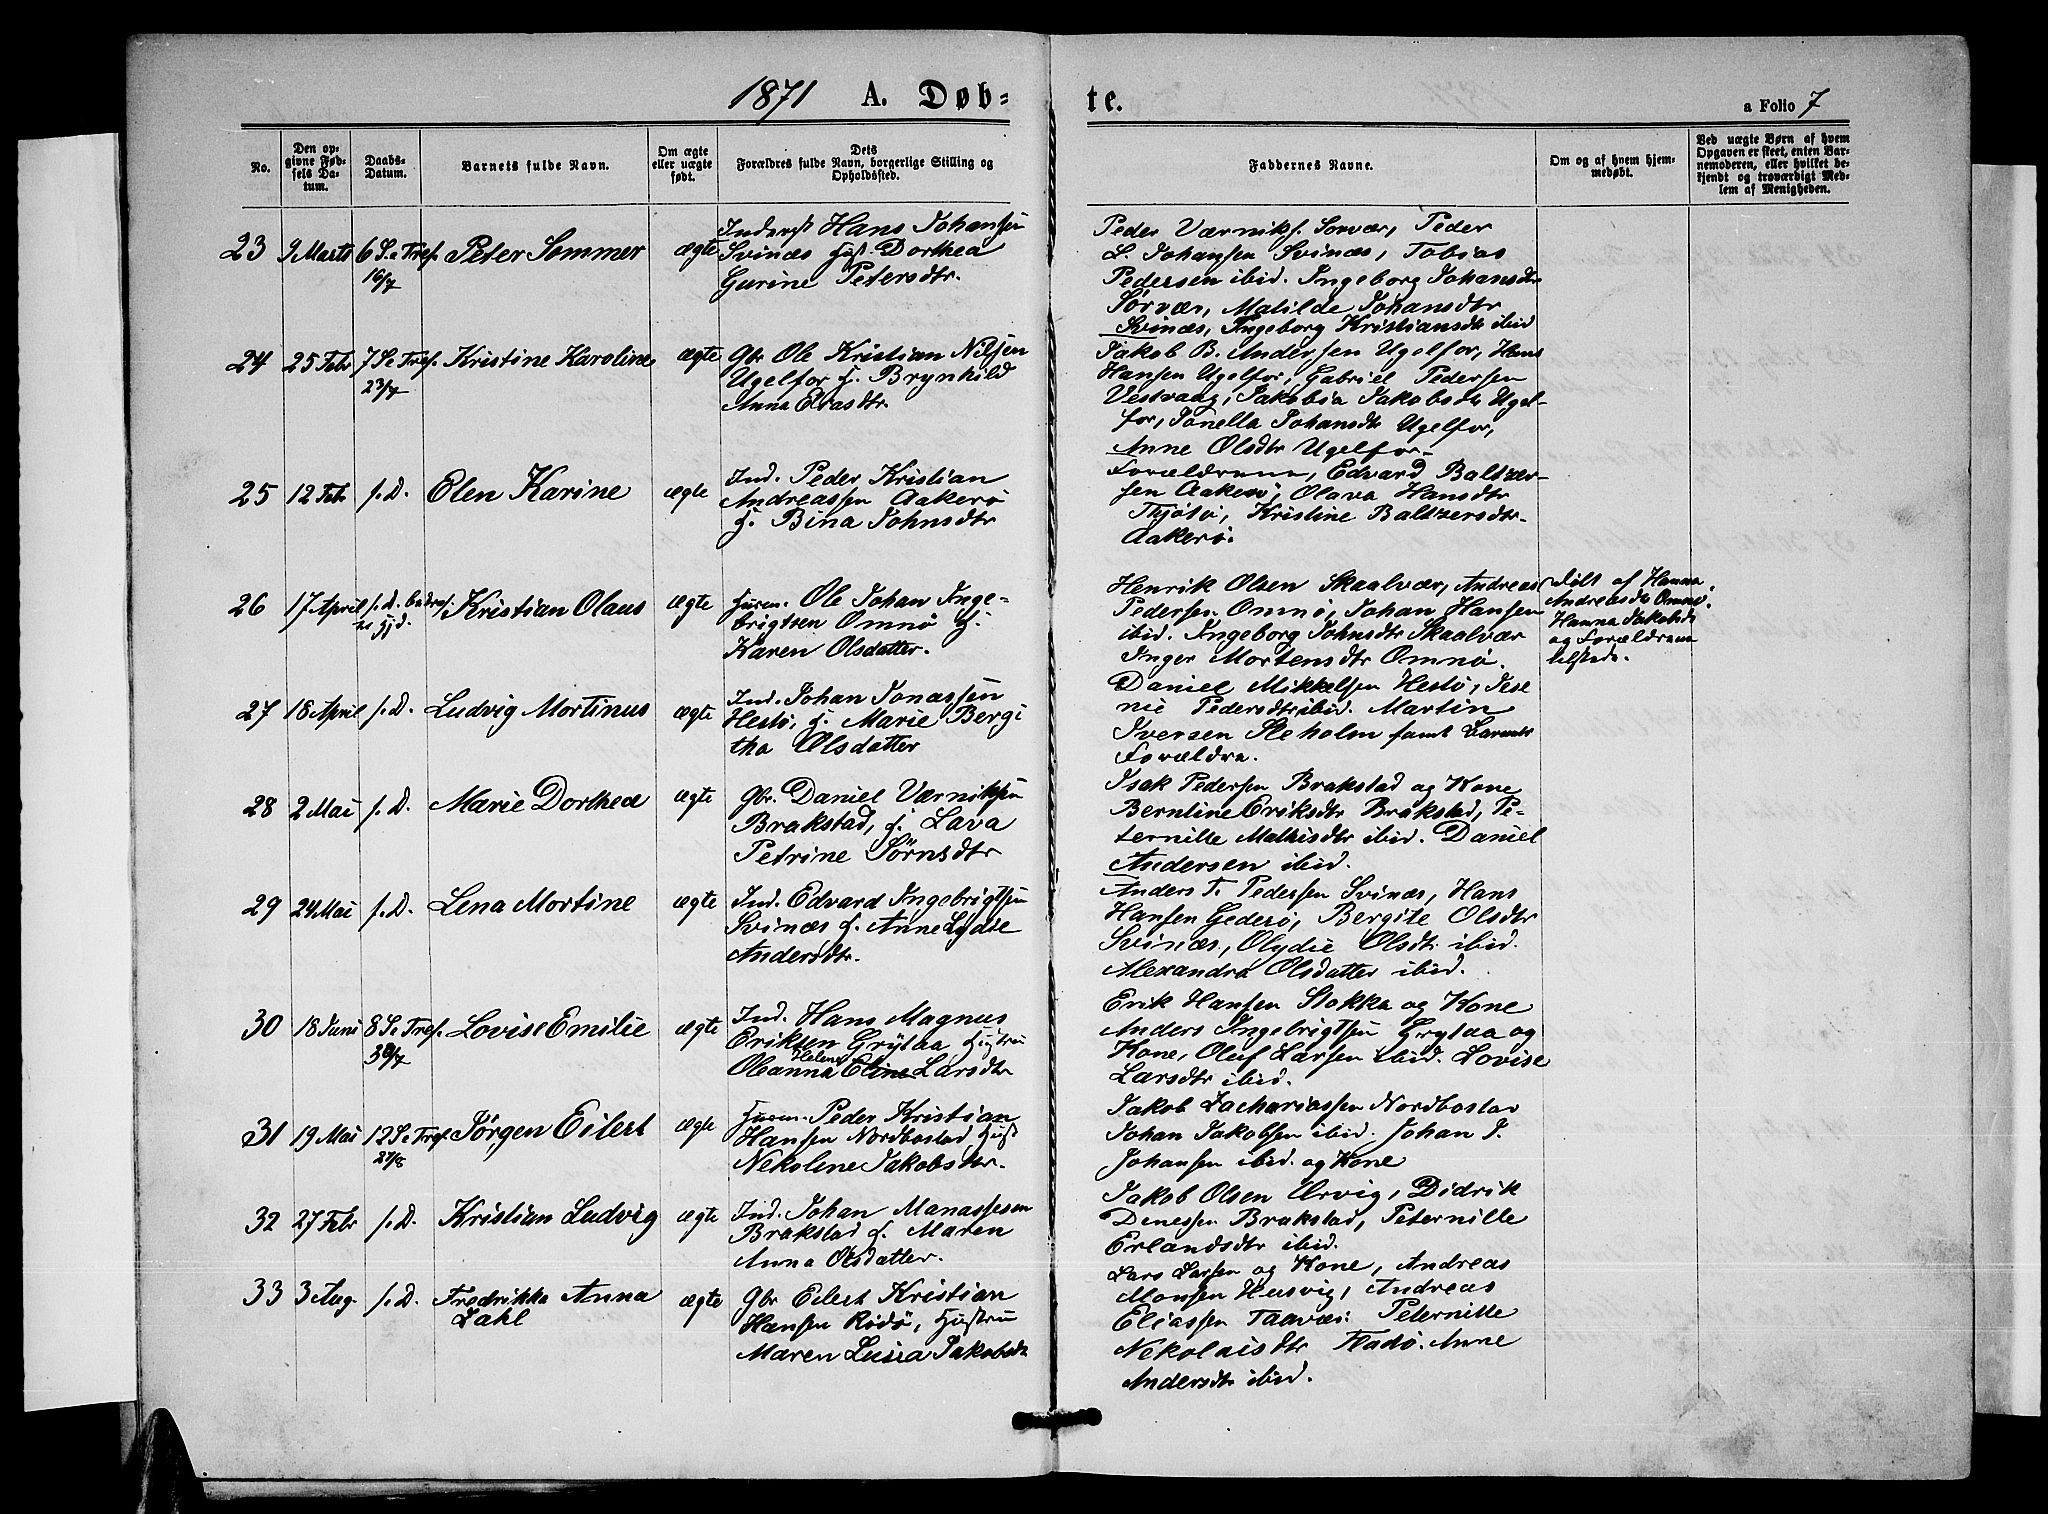 1871 A. Døb- te. a Folio 7
No.
Den op-
givne Fød-
sels Da-
tum.
Daabs-
Datum.
Barnets fulde Navn.
Om ægte
eller uægte
født.
Dets
Forældres fulde Navn, borgerlige Stilling og
Opholdssted.
Faddernes Navne.
Om og af hvem hjem-
medøbt.
Ved uægte Børn af hvem
Opgaven er skeet, enten Bar-
nemoderen, eller hvilket be-
kjendt og troværdigt Med-
lem af Menigheden.
23 9 Marts 6 S. e Tref. Peter Sommer ægte
16/7
Inderst Hans Johansen
Svinæs Hust. Dorthea
Gurine Petersdtr.
Peder Værniksf. Sørvær, Peder
L. Johansen Svinæs, Tobias
Pedersen ibid. Ingeborg Johansdtr
Sørvær, Matilde Johansdtr
Svinæs, Ingeborg Kristiansdtr ibid
24 25 Febr 7 S. e Tref. Kristine Karoline ægte
23/7
Gbr Ole Kristian Nilsen
Ugelfor H. Brynhild
Anna Eliasdtr.
Jakob B. Andersen Ugelfor, Hans
Hansen Ugelfor, Gabriel Pedersen
Vestvaag, Jakobia Jakobsdtr Ugel-
for, Tonella Johansdtr Ugelfor,
Anne Olsdtr Ugelfor.
25 12 Febr s. D. Elen Karine ægte
Ind. Peder Kristian
Andreassen Aakerø
H. Bina Johnsdtr
Forældrene, Edvard Baltzer-
sen Aakerø, Olava Hansdtr
Thjøtø, Kristine Baltzersdtr
Aakerø.
26 17 April s. D. Kristian Olaus ægte
hjd.
Huusm. Ole Johan Inge-
brigtsen Omnø H.
Karen Olsdatter.
Henrik Olsen Skaalvær, Andreas
Pedersen Omnø, Johan Hansen
ibid. Ingeborg Johnsdtr Skaalvær
Inger Mortensdtr Omnø.
Døbt af Hanna
Andreasdtr Omnø.
Hanna Jakobsdtr
og Forældrene
tilstede.
27 18 April s. D. Ludvig Mortinus ægte
Ind. Johan Jonassen
Hestø, H. Marie Bergi
tha Olsdatter
Daniel Mikkelsen Hestø, Jese
nie Pedersdtr ibid. Martin
Iversen Steholm samt Barnets
Forældre.
28 2 Mai s. D. Marie Dorthea ægte
Gbr. Daniel Værniksen
Brakstad, H. Lava
Petrine Sørnsdtr
Isak Pedersen Brakstad og Kone
Berntine Eriksdtr Brakstad, Pe-
ternille Mathisdtr ibid. Daniel
Andersen ibid.
29 24 Mai s. D. Lena Mortine ægte
Ind. Edvard Ingebrigtsen
Svinæs H. Anne Lydie
Andersdtr.
Anders T. Pedersen Svinæs, Hans
Hansen Gederø, Bergite Olsdtr
Svinæs, Olydie Olsdtr ibid.
Alexandra Olsdatter ibid.
30 18 Juni 8 S. e Tref. Lovise Emilie ægte
30/7
Ind. Hans Magnus
Eriksen Grytaa Hustru
Helene
Oleanna Eline Larsdtr
Erik Hansen Stokka og Kone
Anders Ingebrigtsen Grytaa og
Kone, Oluf Larsen ibid. Lovise
Larsdtr ibid.
31 19 Mai 12 S. e Tref. Jørgen Eilert ægte
27/8
Huusm. Peder Kristian
Hansen Nordbostad, Hust
Nekoline Jakobsdtr.
Jakob Zachariassen Nordbostad
Johan Jakobsen ibid. Johan J.
Johansen ibid. og Kone
32 27 Febr s. D. Kristian Ludvig ægte
Ind. Johan Manassesen
Brakstad H. Maren
Anna Olsdatter.
Jakob Olsen Ürvig, Didrik
Denessen Brakstad, Peternille
Erlandsdtr ibid.
33 3 Aug. s. D. Fredrikka Anna
Zahl
ægte
Gbr Eilert Kristian
Hansen Rødø, Hustru
Maren Lusia Jakobsdtr
Lars Larsen og Kone, Andreas
Monsen Husvig, Andreas
Eliassen Taavær, Peternille
Nekolaisdtr Fladø. Anne
Andersdtr ibid.